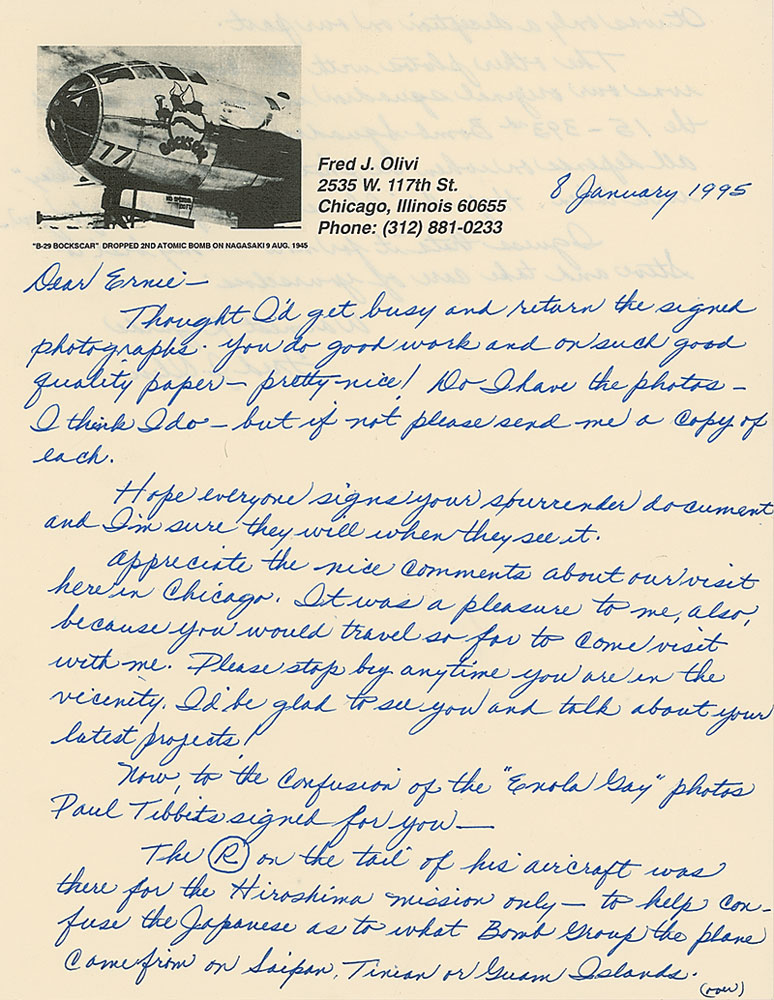 77
BOCKSCAR
Fred J. Olivi
2535 W. 117th St.
Chicago, Illinois 60655
Phone: (312) 881-0233
8 January 1995
"B-29 BOCKSCAR" DROPPED 2ND ATOMIC BOMB ON NAGASAKI 9 AUG. 1945
Dear Ernie—
Thought I'd get busy and return the signed
photographs. You do good work and on such good
quality paper— pretty nice! Do I have the photos—
I think I do— but if not please send me a copy of
each.
Hope everyone signs your spurrender document
and I'm sure they will when they see it.
Appreciate the nice comments about our visit
here in Chicago. It was a pleasure to me, also,
because you would travel so far to come visit
with me. Please stop by anytime you are in the
vicinity. I'd be glad to see you and talk about your
latest projects!
Now, to the confusion of the "Enola Gay" photos
Paul Tibbits signed for you—
The (R) on the tail of his aircraft was
there for the Hiroshima mission only— to help con-
fuse the Japanese as to what Bomb Group the plane
came from on Saipan, Tinian or Guam Islands.
(over)